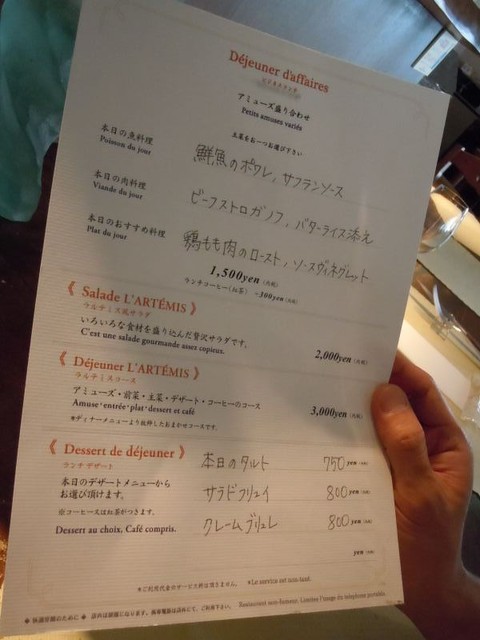 Déjeuner d'affaires
ビジネスランチ
アミューズ盛り合わせ
Petits amuses variés
主菜をお一つお選び下さい
本日の魚料理
Poisson du jour
鮮魚のポワレ、サフランソース
本日の肉料理
Viande du jour
ビーフストロガノフ、バターライス添え
本日のおすすめ料理
Plat du jour
鶏もも肉のロースト、ソースヴィネグレット
1,500yen (税込)
ランチコーヒー(紅茶) +300yen (税込)
《 Salade L'ARTÉMIS 》
ラルテミス風サラダ
いろいろな食材を盛り込んだ贅沢サラダです。
C'est une salade gourmande assez copieux.
2,000yen (税込)
《 Déjeuner L'ARTÉMIS 》
ラルテミスコース
アミューズ・前菜・主菜・デザート・コーヒーのコース
Amuse·entrée·plat·dessert et café
3,000yen (税込)
※ディナーメニューより抜粋したおまかせコースです。
《 Dessert de déjeuner 》
ランチ デザート
本日のタルト 750 yen (税込)
本日のデザートメニューから
お選び頂けます。
サラドフリュイ 800 yen (税込)
※コーヒー又は紅茶がつきます。
クレームブリュレ 800 yen (税込)
Dessert au choix, Café compris.
yen (税込)
※ご利用代金のサービス料は頂きません。 ※Le service est non-tant.